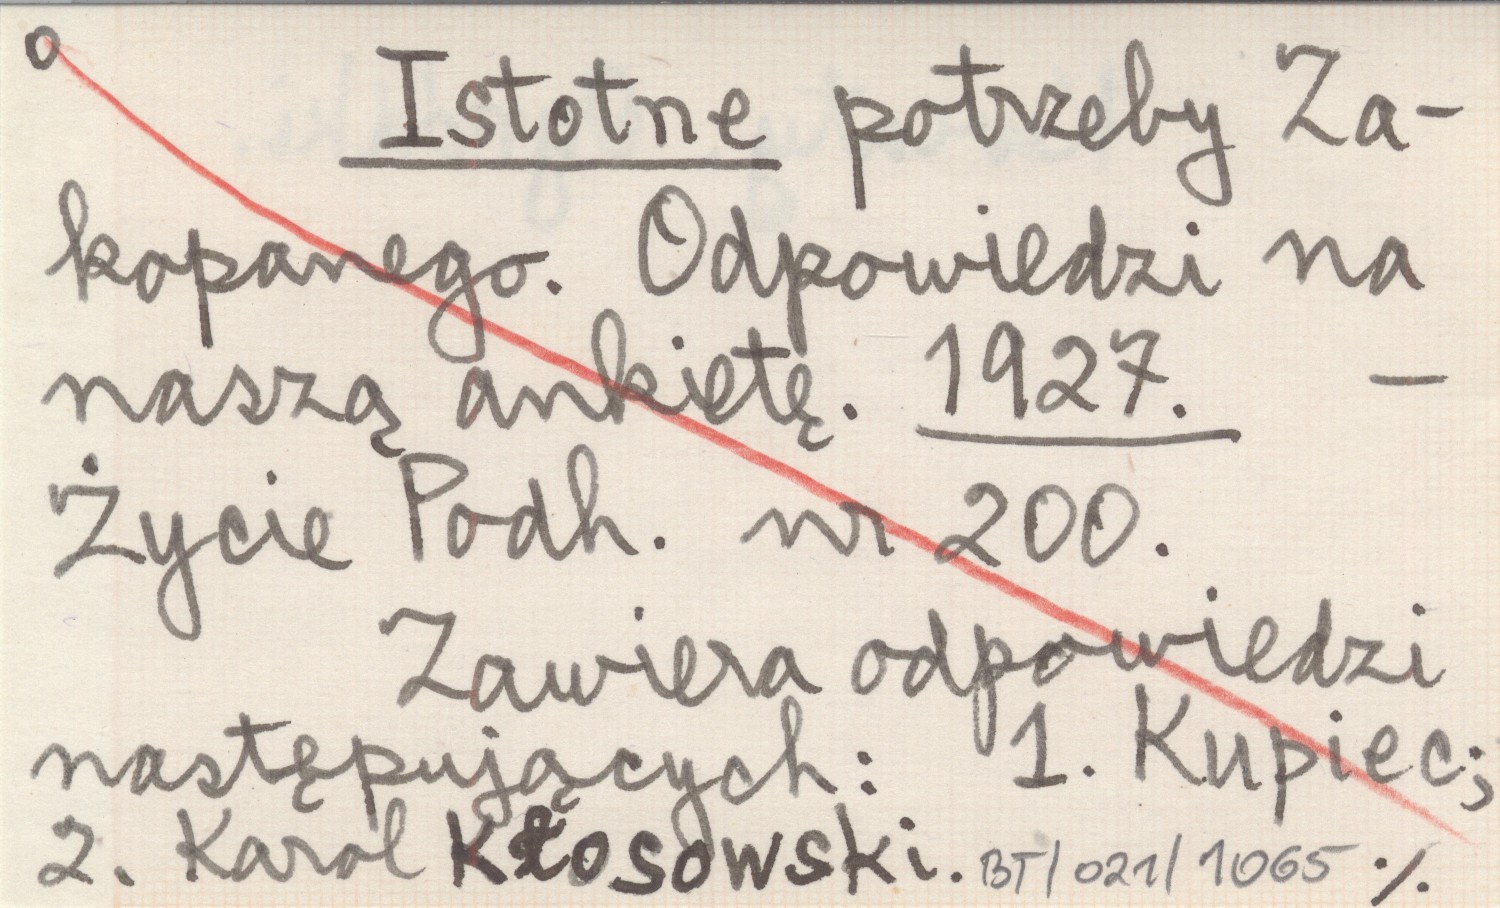 o Istotne potrzeby Za-
kopanego. Odpowiedzi na
naszą ankietę. 1927. –
Życie Podh. nr 200.
Zawiera odpowiedzi
następujących: 1. Kupiec;
2. Karol Kłosowski. BT/021/1065 ·/.